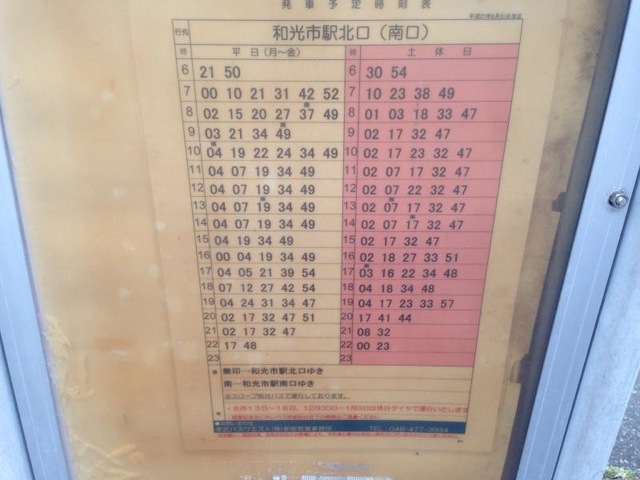 発車予定時刻表
行先 和光市駅北口（南口）
時 平日（月～金） 時 土休日
6 21 50 6 30 54
7 00 10 21 31 42 52 7 10 23 38 49
8 02 15 20 27 37 49 8 01 03 18 33 47
9 03 21 34 49 9 02 17 32 47
10 04 19 22 24 34 49 10 02 17 23 32 47
11 04 07 19 34 49 11 02 07 17 32 47
12 04 07 19 34 49 12 02 07 22 32 47
13 04 07 19 34 49 13 02 07 17 32 47
14 04 07 19 34 49 14 02 07 17 32 47
15 04 19 34 49 15 02 17 32 47
16 00 04 19 34 49 16 02 18 27 33 51
17 04 05 21 39 54 17 03 16 22 34 48
18 07 12 27 42 54 18 04 18 34 48
19 04 24 31 34 47 19 04 17 23 33 57
20 02 17 32 47 51 20 17 41 44
21 02 17 32 47 21 08 32
22 17 48 22 00 23
23 23
無印…和光市駅北口ゆき
南…和光市駅南口ゆき
・8月13日～16日、12月30日～1月3日は休日ダイヤで運行いたします
TEL 048-477-3934